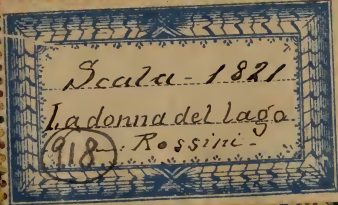 Scala - 1821
La donna del lago
918 - Rossini -